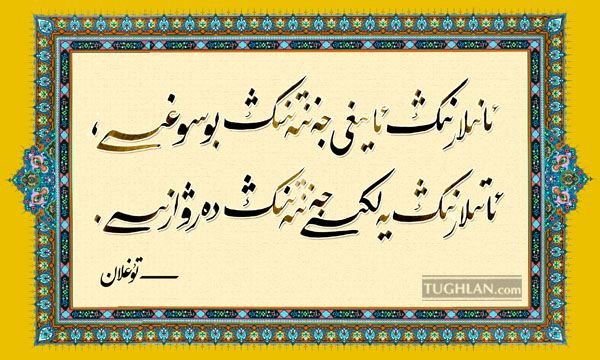 ئانىلارنىڭ ئايىغى جەننەتنىڭ بوسوغىسى،
ئاتىلارنىڭ يەلكىسى جەننەتنىڭ دەرۋازىسى.
— تۇغلان
TUGHLAN.com